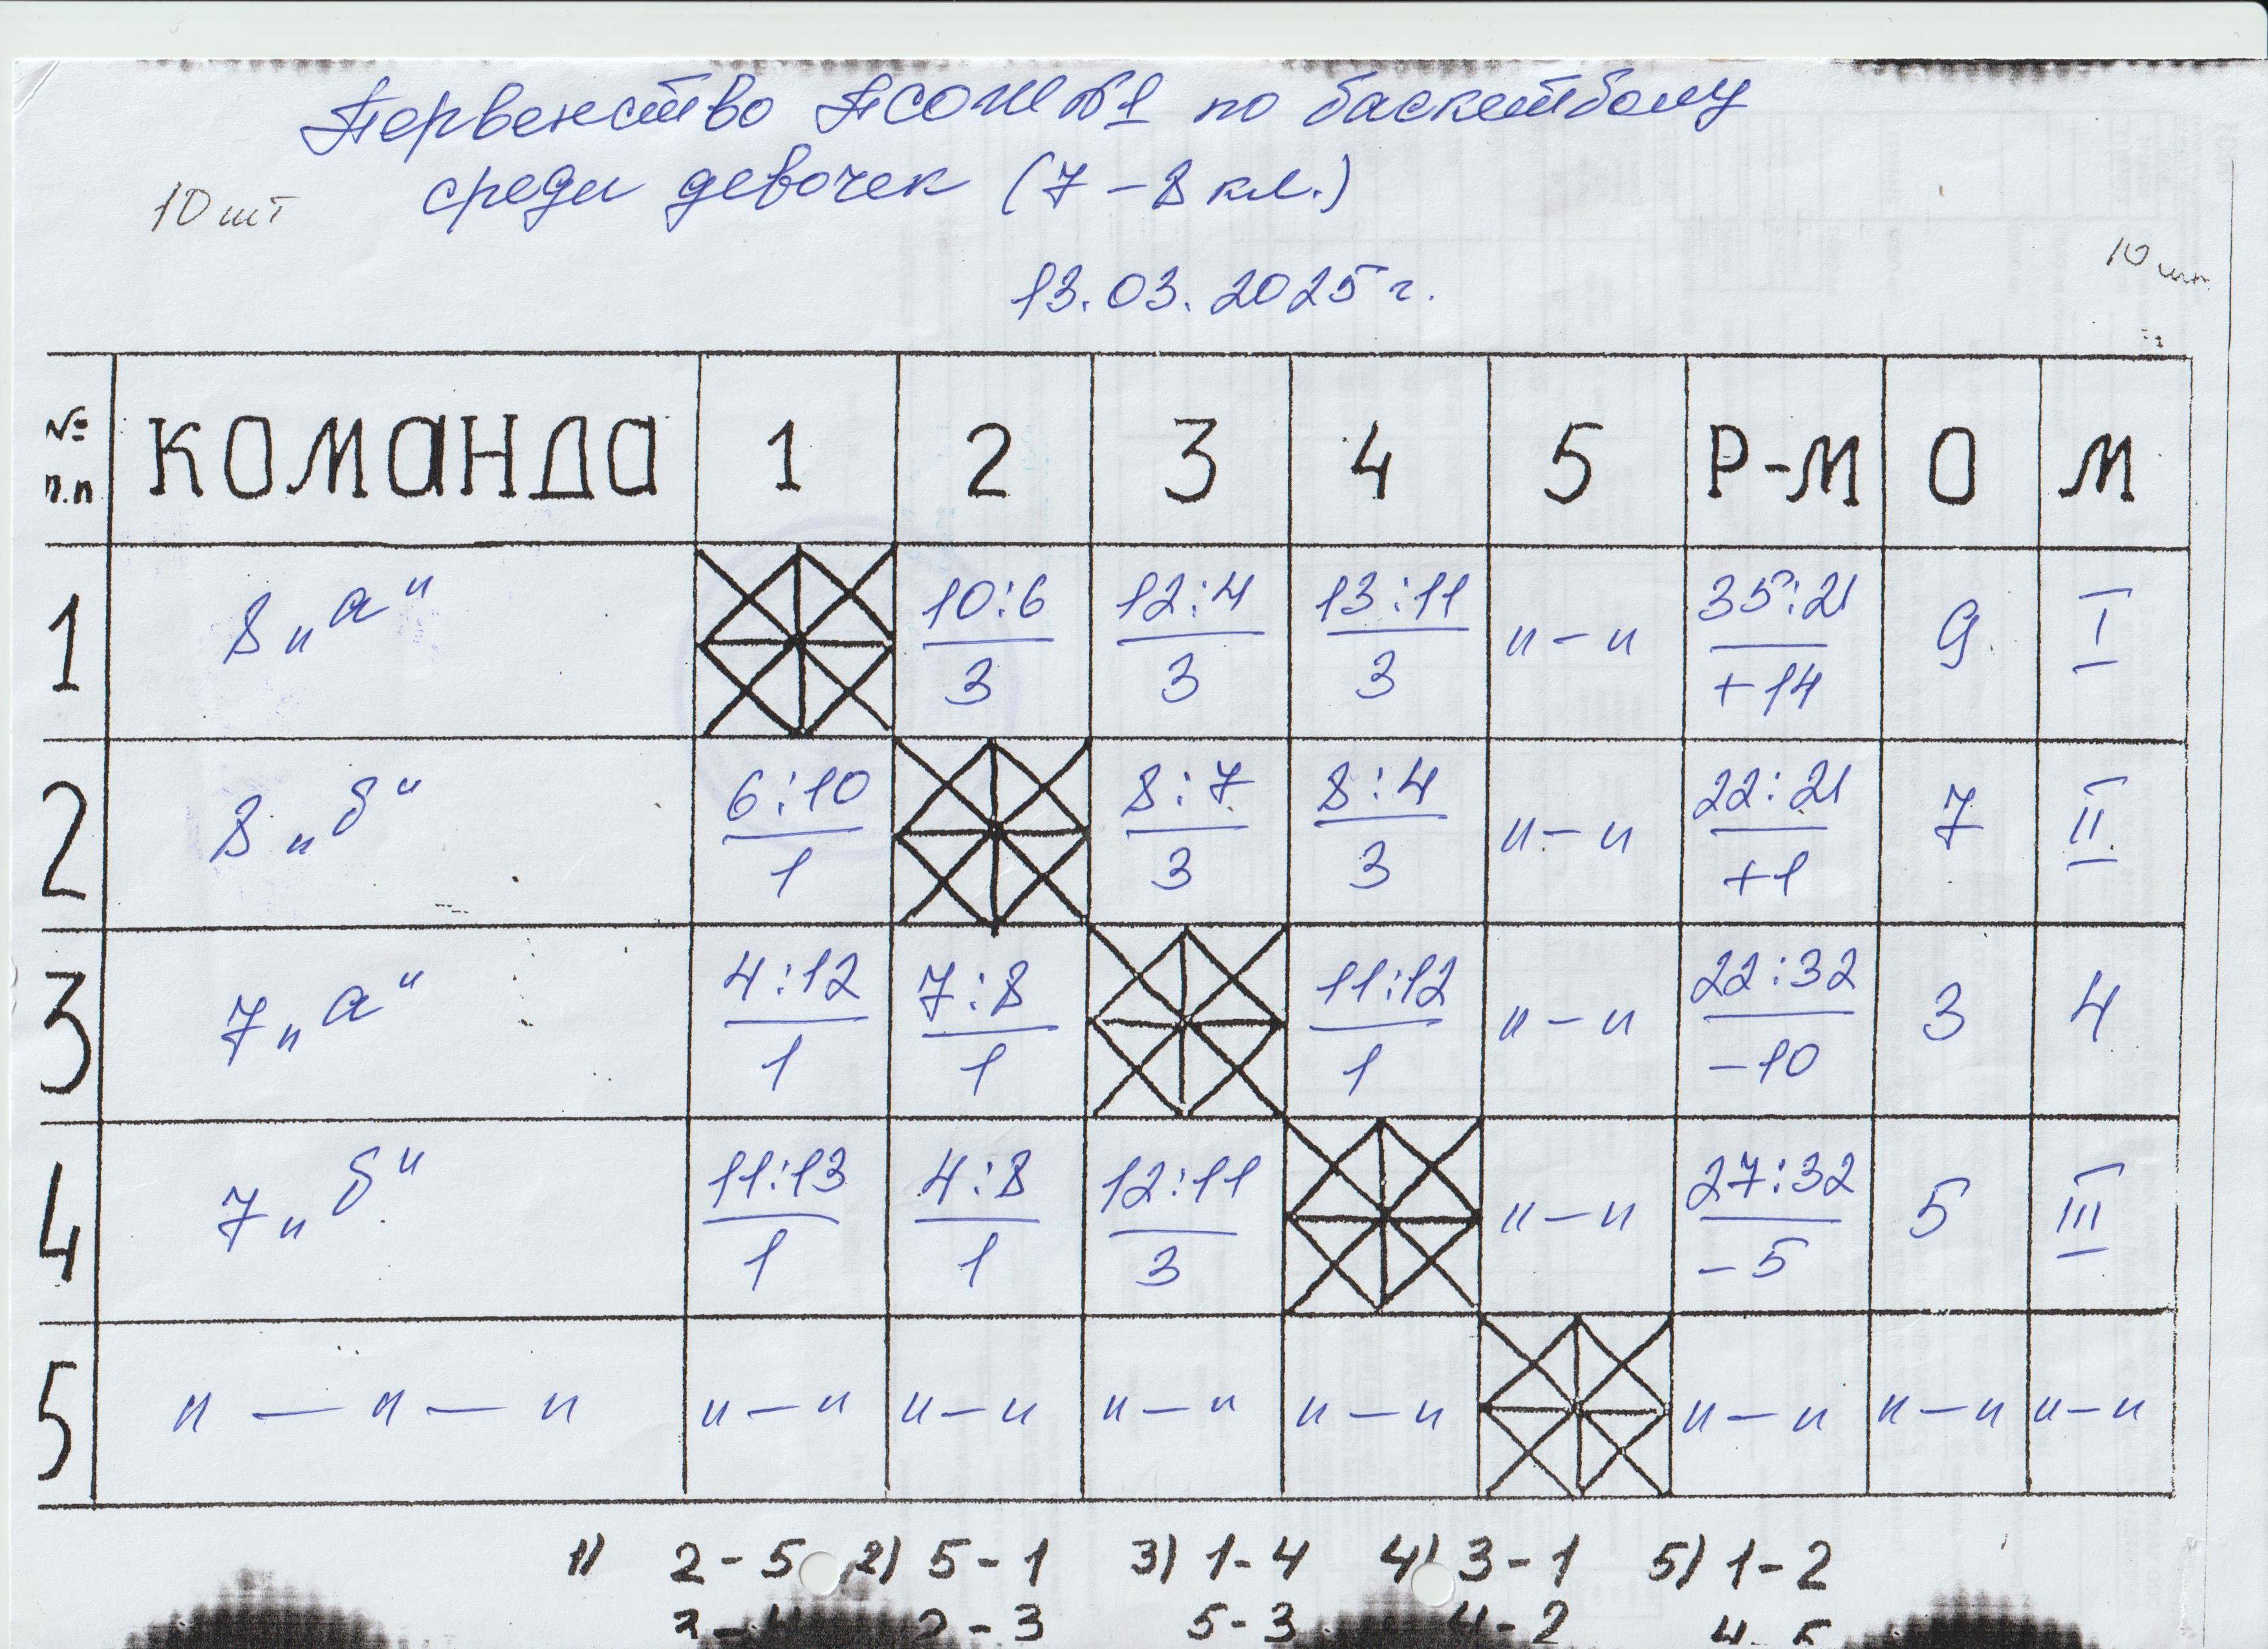 Первенство ПСОШ №1 по баскетболу
10 шт среди девочек (7-8 кл.)
10 шт
13.03.2025 г.
№ п.п КОМАНДА 1 2 3 4 5 Р-М О М
1 8 "а" 10:6 12:4 13:11 "-" 35:21 9 I
3 3 3 +14
2 8 "б" 6:10 8:7 8:4 "-" 22:21 7 II
1 3 3 +1
3 7 "а" 4:12 7:8 11:12 "-" 22:32 3 4
1 1 1 -10
4 7 "б" 11:13 4:8 12:11 "-" 27:32 5 III
1 1 3 -5
5 "-"-" "-" "-" "-" "-" "-" "-" "-"
1) 2-5 2) 5-1 3) 1-4 4) 3-1 5) 1-2
3-4 2-3 5-3 4-2 4-5